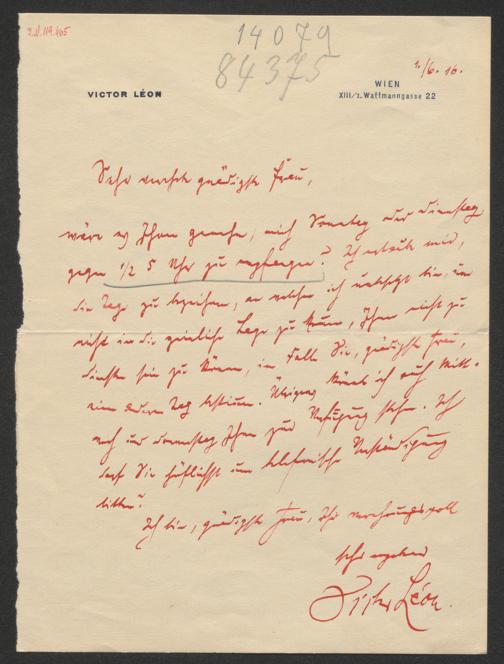 14079
84375
1./6. 16.
VICTOR LÉON
WIEN
XIII/2. Wattmanngasse 22
Sehr verehrte gnädigste Frau,
wäre es Ihnen genehm, mich Sonntag oder Dienstag
gegen 1/2 5 Uhr zu empfangen? Ich erlaube mir,
die Tage zu bezeichnen, an welchen ich unbesetzt bin, um
nicht in die peinliche Lage zu kommen, Ihnen nicht zu
Diensten sein zu können, im Falle Sie, gnädigste Frau,
einen anderen Tag bestimmen. Übrigens könnte ich auch Mitt-
woch und Donnerstag Ihnen zur Verfügung stehen. Ich
darf Sie höflichst um telefonische Verständigung
bitten?
Ich bin, gnädigste Frau, Ihr verehrungsvoll
sehr ergebener
Victor Léon.